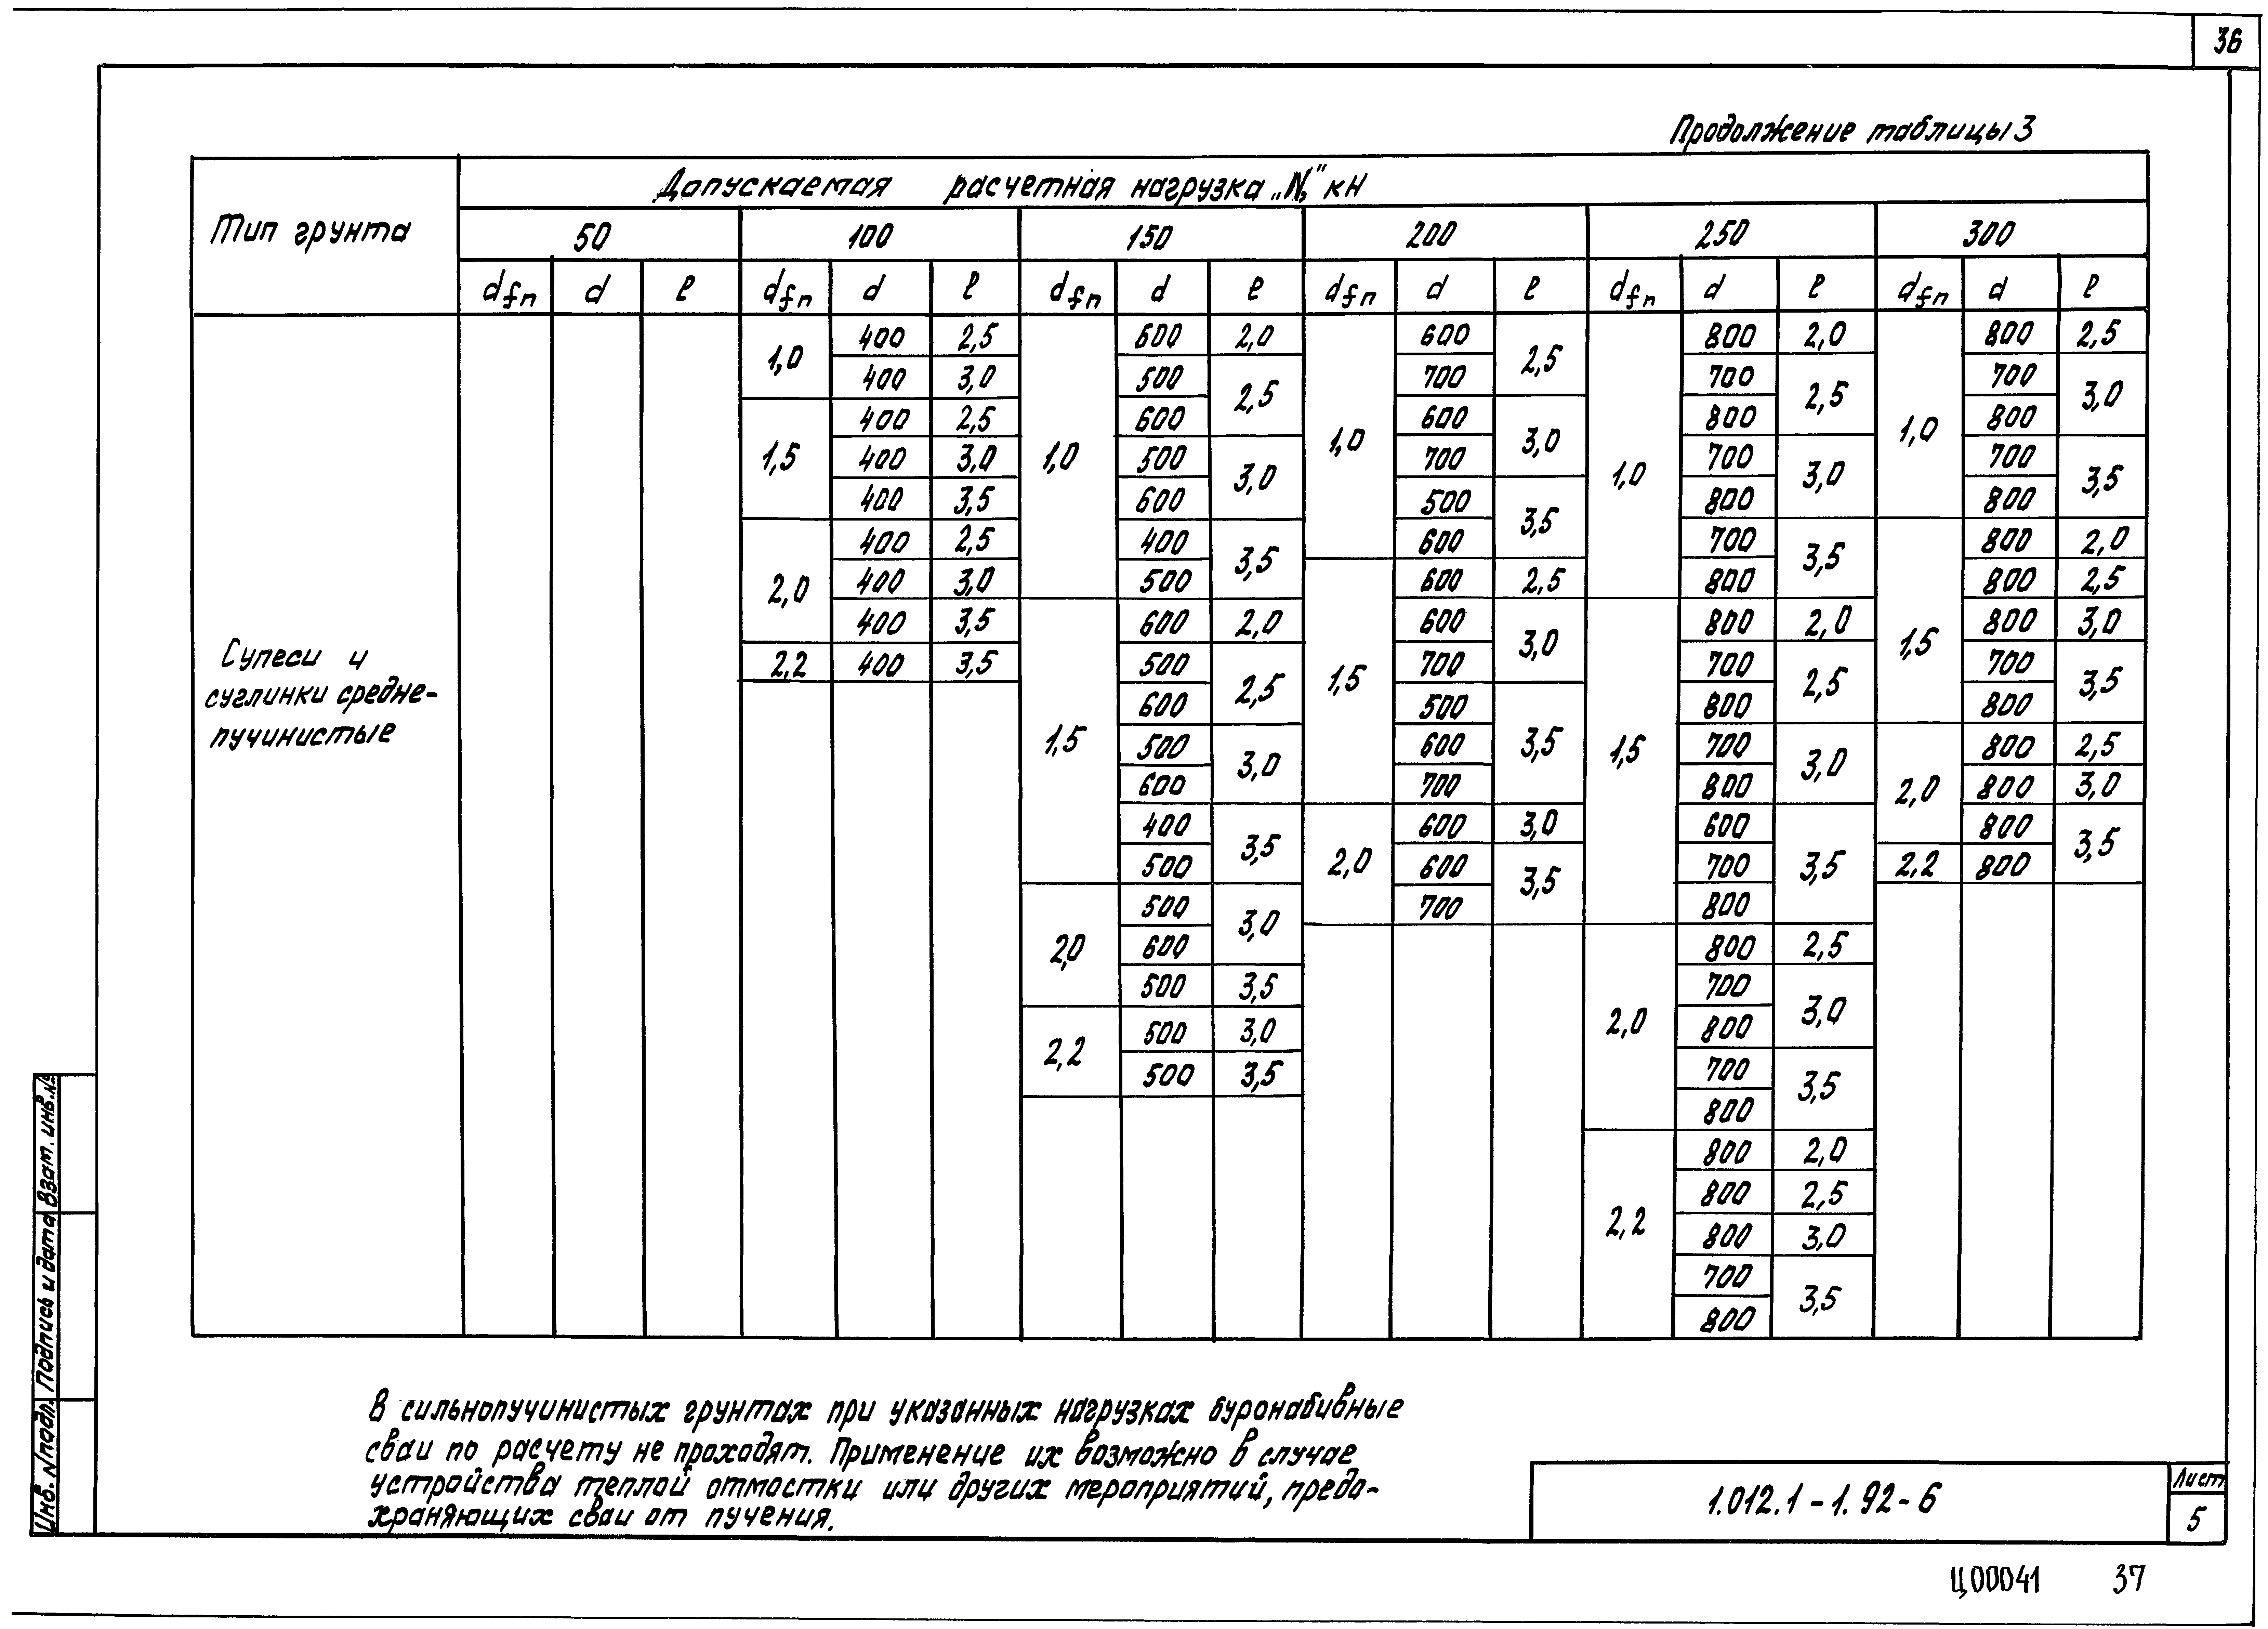 36
Продолжение таблицы 3
Тип грунта
Допускаемая расчетная нагрузка „N," кН
50 100 150 200 250 300
dfn d l dfn d l dfn d l dfn d l dfn d l dfn d l
1,0 400 2,5 1,0 600 2,0 1,0 600 2,5 1,0 800 2,0 1,0 800 2,5
400 3,0 500 2,5 700 700 2,5 700 3,0
1,5 400 2,5 600 600 3,0 800 800
400 3,0 500 3,0 700 700 3,0 700 3,5
400 3,5 600 500 3,5 800 800
2,0 400 2,5 400 3,5 600 700 3,5 1,5 800 2,0
400 3,0 500 1,5 600 2,5 800 800 2,5
400 3,5 1,5 600 2,0 600 3,0 1,5 800 2,0 800 3,0
2,2 400 3,5 500 2,5 700 700 2,5 700 3,5
600 500 3,5 800 800
500 3,0 600 700 3,0 2,0 800 2,5
600 700 800 800 3,0
400 3,5 2,0 600 3,0 600 3,5 800 3,5
500 600 3,5 700 2,2 800
2,0 500 3,0 700 800
600 2,0 800 2,5
500 3,5 700 3,0
2,2 500 3,0 800
500 3,5 700 3,5
800
2,2 800 2,0
800 2,5
800 3,0
700 3,5
800
Супеси и
суглинки средне-
пучинистые
В сильнопучинистых грунтах при указанных нагрузках буронабивные
сваи по расчету не проходят. Применение их возможно в случае
устройства теплой отмостки или других мероприятий, предо-
храняющих сваи от пучения.
Инв. N подл. Подпись и дата Взам. инв. N
1.012.1-1.92-6
Лист
5
Ц00041 37